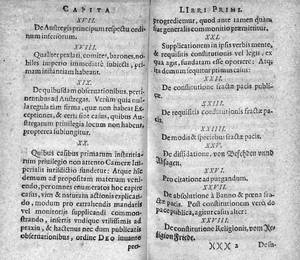 CAPITA
XVII.
De Austregis principum respectu ordinum inferiorum.
XVIII.
Qualiter prælati, comites, barones, nobiles imperio immediatè subiecti, primam instantiam habeant.
XIX.
De quibusdam observationibus, pertinentibus ad Austregas. Verum quia nullaregula tam firma, quæ non habeat Exceptiones, & certi sint casus, quibus Austregarum privilegia locum non habent, propterea subiungitur.
XX.
Quibus casibus primarum instantiarum privilegio non attento Cameræ Imperialis iurisdictio fundetur. Atque hic
demum ad propositam materiam veniendo,
&
modum pro extrahendis mandatis vel monitoriis supplicandi
praxis, & hactenus nec dum publicatis observationibus, ordine DEO iuvante
pro-
LIBRI PRIMI.
progrediemur, quod ante tamen quàm fiat generali communitio permittitur.
XXI.
Supplicationem in ipsis verbis mente, & requisitis constitutionis vel legis, ex qua agit, fundatam esse oportere: Atque itademum sequitur primus casus:
XXII.
De constitutione fractæ pacis publicæ.
XXIII.
De requisitis constitutionis fractæ pacis.
XXIIII.
De modis & speciebus fractæ pacis.
XXV.
De diffidatione, von Befehden vnnd
XXVI.
Pro citatione ad purgandum.
XXVII.
De absolutione à Banno & pœna fractæ pacis. Post constitutionem verò de pace publica, agitur casus alter:
XXVIII.
De constitutione Religionis, vom Religion Friede.
XXX 2